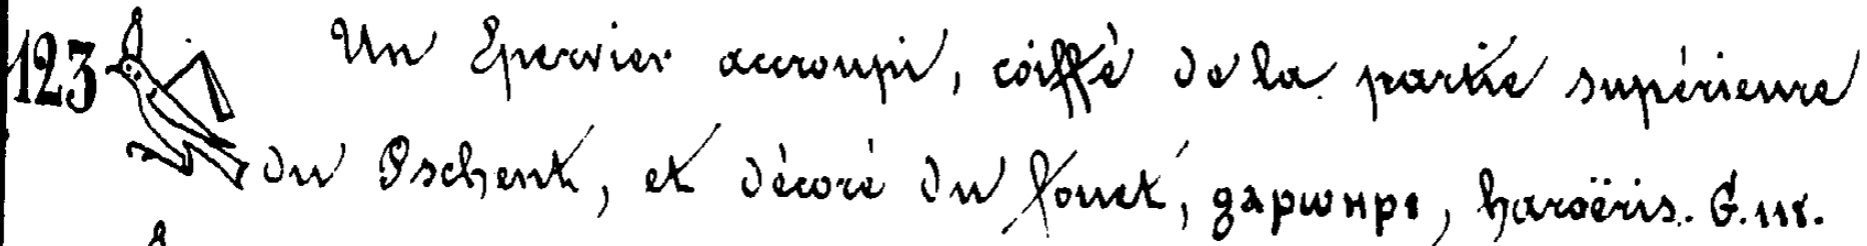 123 Un Epervier accroupi, coiffé de la partie supérieure
du Pschent, et décoré du fouet, ϩⲁⲣⲱⲏⲣⲓ, haroëris. G. 118.